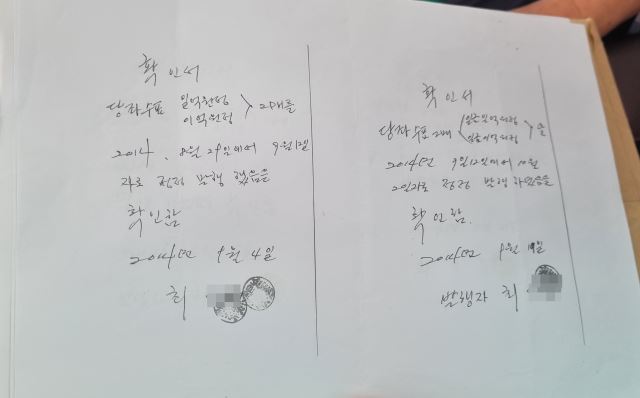 확인서
당좌수표 일억원정
이억원정 > 2매를
2014. 8월 29일에서 9월12일
자로 정정 발행 했음을
확인함
2014년 9월 4일
최
확인서
당좌수표 2매 일금일억원정
일금이억원정 을
2014년 9월12일에서 10월
2일자로 정정 발행 하였음을
확인함.
2014년 9월 일
발행자 최